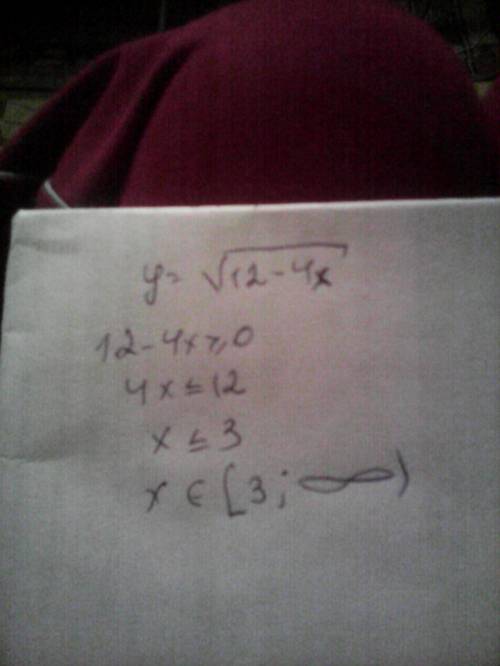 y = √12-4x
12-4x≥0
4x≤12
x ≤ 3
x ∈ [3; ∞)